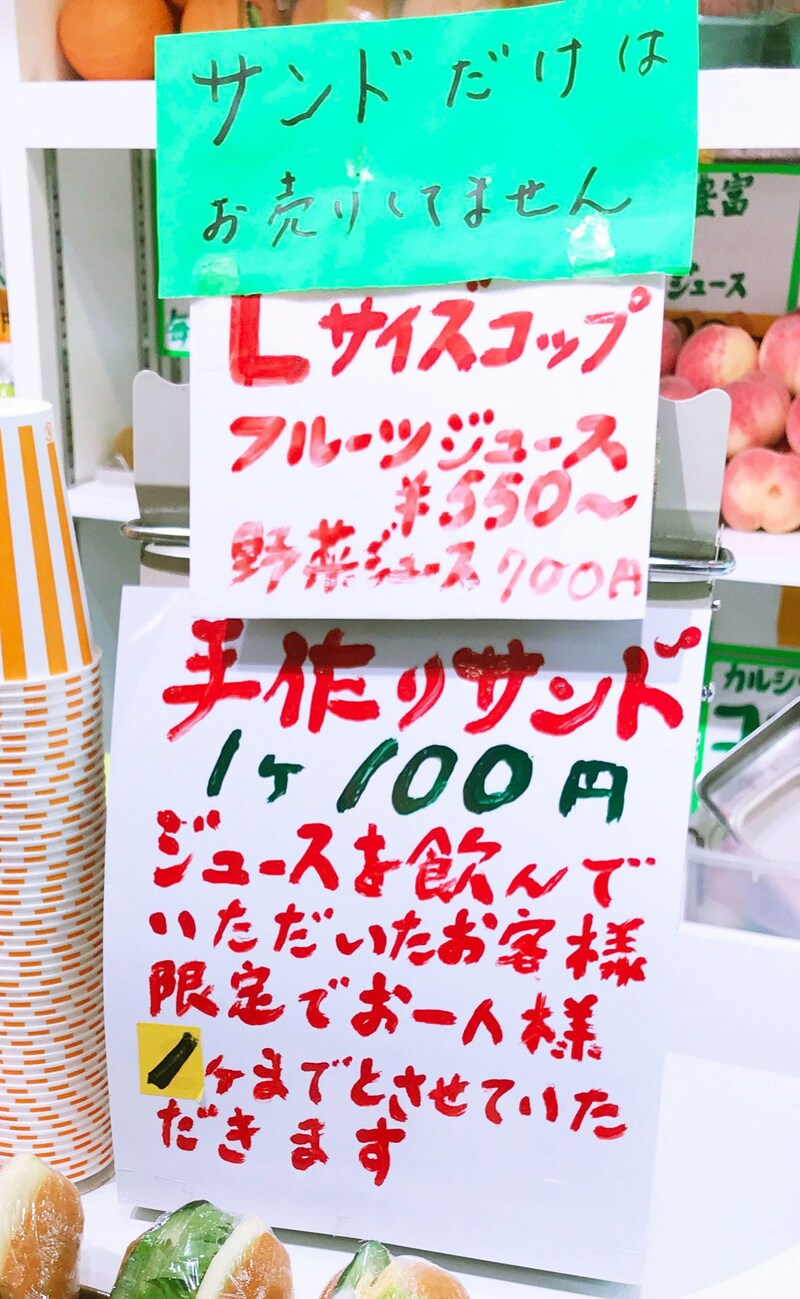 サンドだけは
お売りしてません
豊富
ジュース
毎
Lサイズコップ
フルーツジュース
¥550〜
野菜ジュース 700円
手作りサンド
1ヶ100円
カルシ
ジュースを飲んで
いただいたお客様
限定でお一人様
1ヶまでとさせていた
だきます